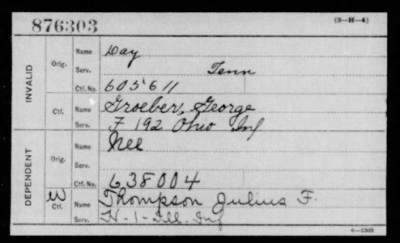 876303 (3-H-4)
INVALID
Orig.
Name Day
Serv. Tenn
Ctf. No. 605611
Ctf.
Name Groeber, George
Serv. F 192 Ohio Inf
DEPENDENT
Orig.
Name Nee
Serv.
Ctf. No. 638004
W
Ctf.
Name Thompson Julius F.
Serv. H-1-Ill. Inf